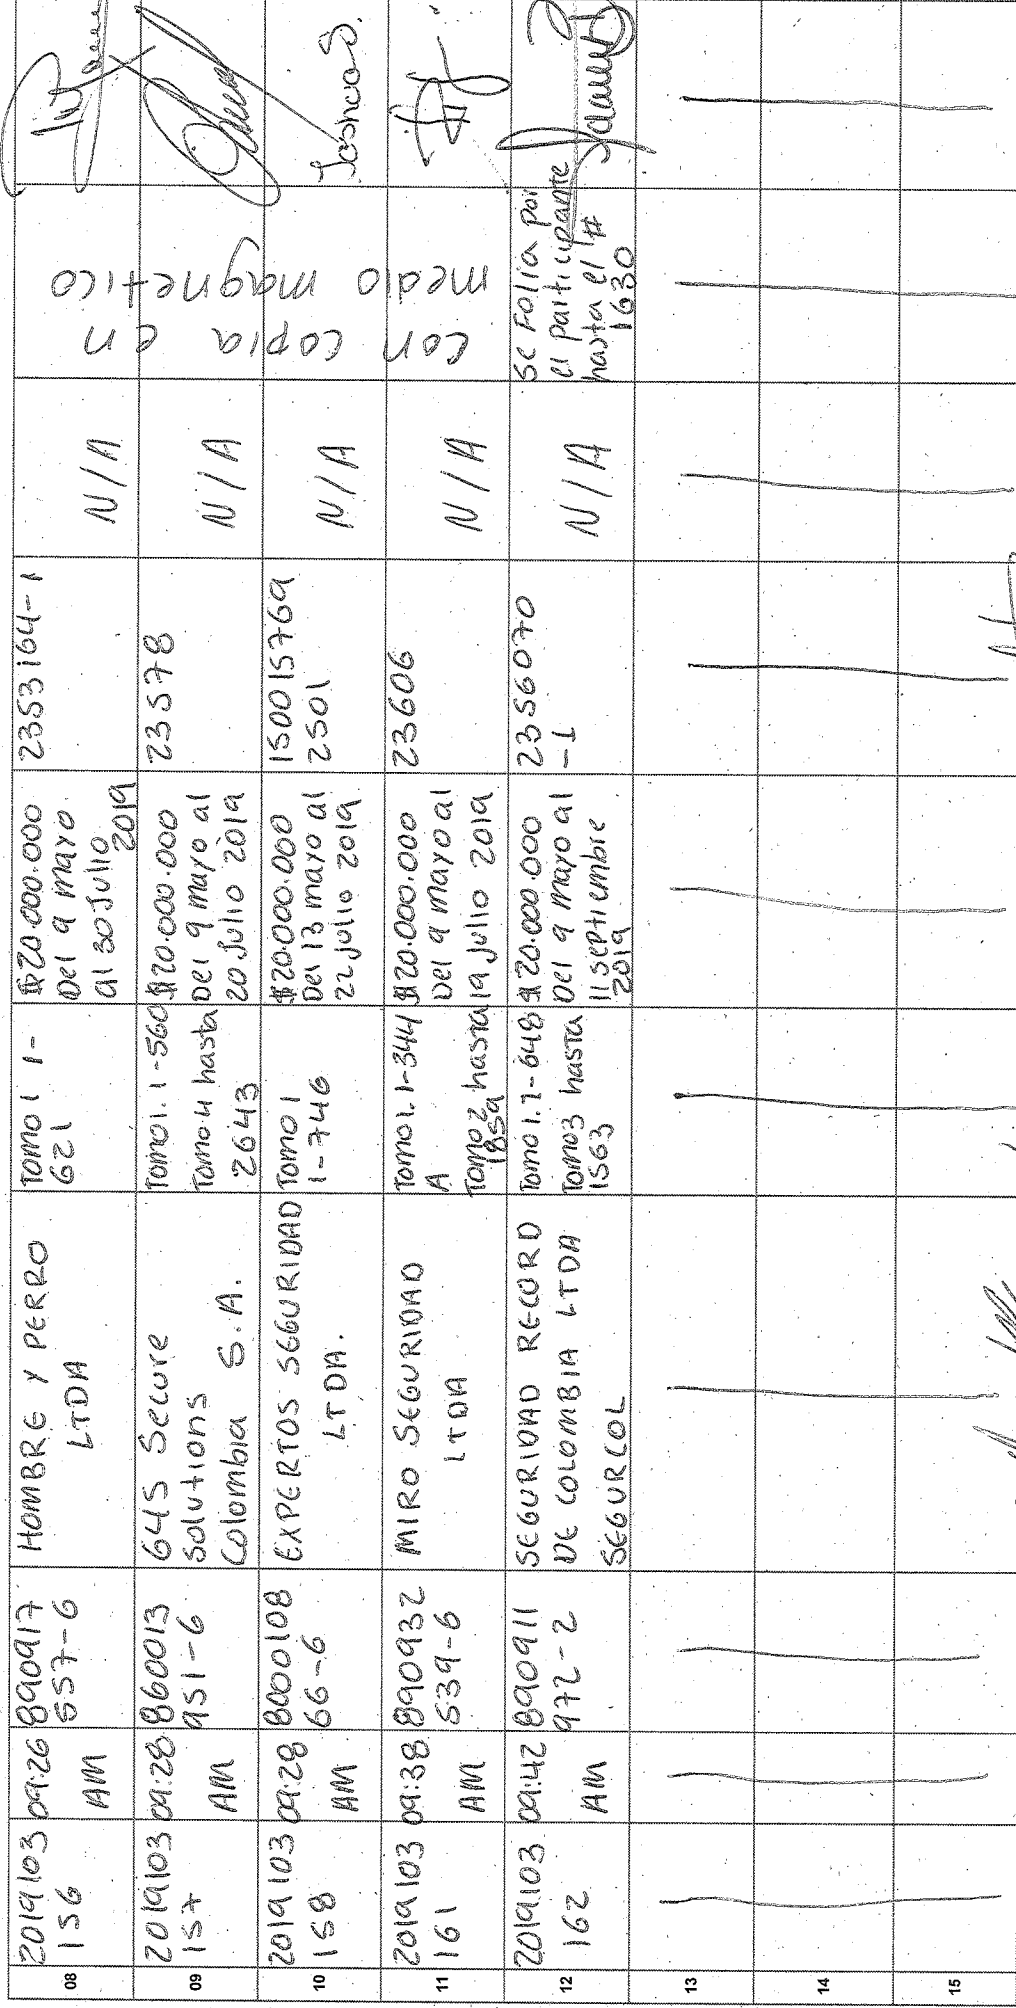 08
2019103
156
09:26
AM
890917
557-6
HOMBRE Y PERRO
LTDA
Tomo 1 1-
621
$20.000.000
Del 9 mayo
al 30 Julio
2019
2353164-1
N/A
con copia en
medio magnetico
09
2019103
157
09:28
AM
860013
951-6
G4S Secure
Solutions
Colombia S.A.
Tomo 1. 1-560
Tomo 4 hasta
2643
$20.000.000
Del 9 mayo al
20 Julio 2019
23578
N/A
10
2019103
158
09:28
AM
8000108
66-6
EXPERTOS SEGURIDAD
LTDA.
Tomo 1
1-746
$20.000.000
Del 13 mayo al
22 julio 2019
150015769
2501
N/A
11
2019103
161
09:38
AM
890932
539-6
MIRO SEGURIDAD
LTDA
Tomo 1. 1-344
A
Tomo 2 hasta
859
$20.000.000
Del 9 mayo al
19 julio 2019
23606
N/A
12
2019103
162
09:42
AM
890911
972-2
SEGURIDAD RECORD
DE COLOMBIA LTDA
SEGURCOL
Tomo 1. 1-648
Tomo 3 hasta
1563
$20.000.000
Del 9 mayo al
11 septiembre
2019
2356070
-1
N/A
Se Folia por
el participante
hasta el #
1630
13
14
15